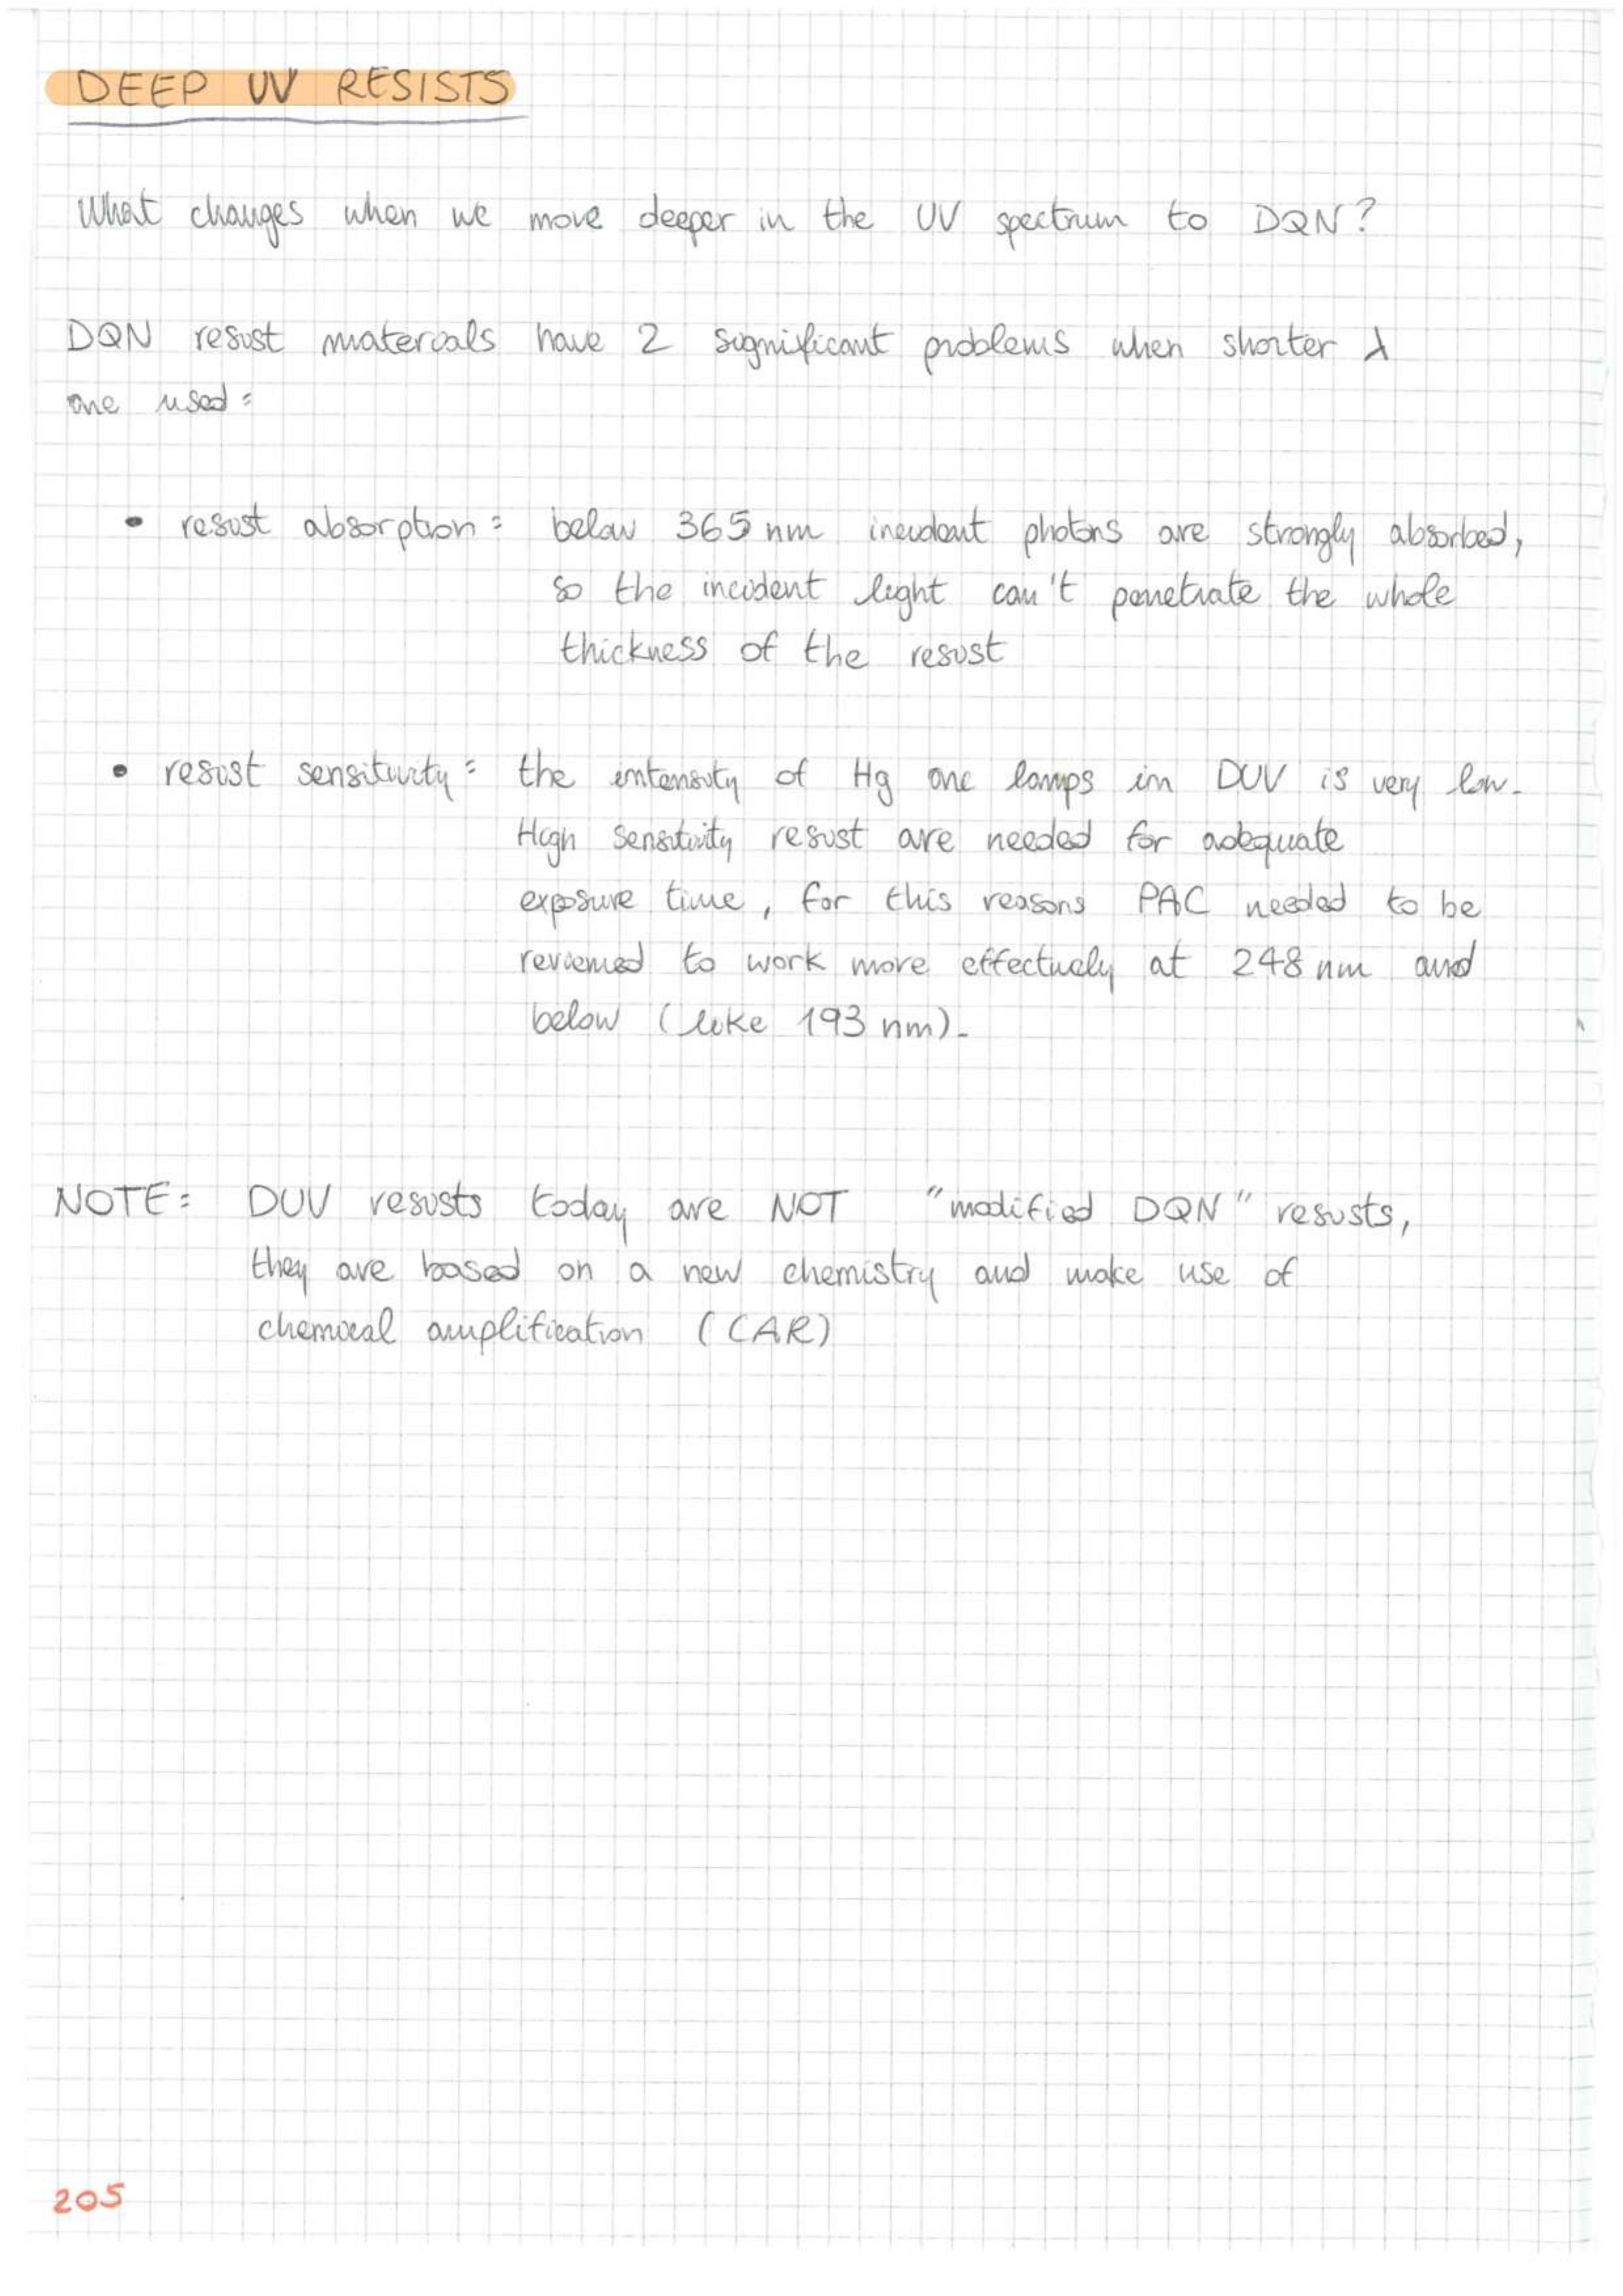 DEEP UV RESISTS
What changes when we move deeper in the UV spectrum to DQN?
DQN resist materials have 2 significant problems when shorter λ
are used:
• resist absorption: below 365 nm incident photons are strongly absorbed,
so the incident light can't penetrate the whole
thickness of the resist
• resist sensitivity: the intensity of Hg arc lamps in DUV is very low.
High sensitivity resist are needed for adequate
exposure time, for this reasons PAC needed to be
reviewed to work more effectively at 248 nm and
below (like 193 nm).
NOTE: DUV resists today are NOT "modified DQN" resists,
they are based on a new chemistry and make use of
chemical amplification (CAR)
205